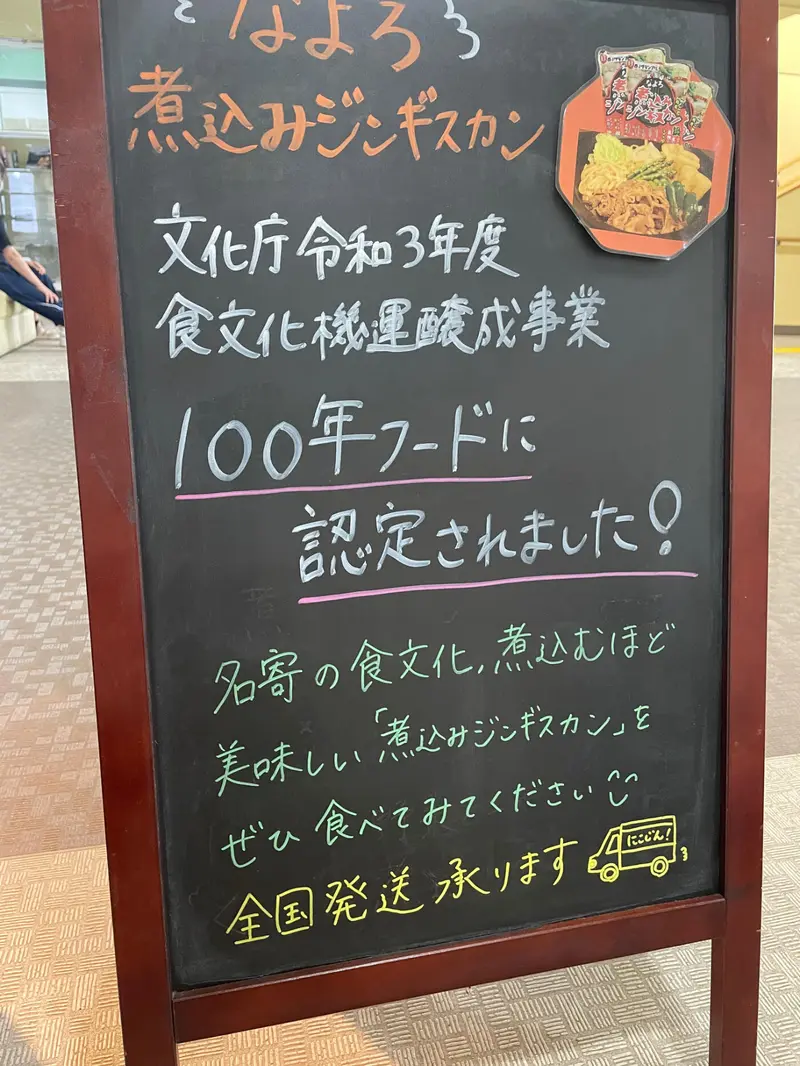 なよろ
煮込みジンギスカン
文化庁令和3年度
食文化機運醸成事業
100年フードに
認定されました!
名寄の食文化,煮込むほど
美味しい「煮込みジンギスカン」を
ぜひ食べてみてください
全国発送承ります
にこじん!